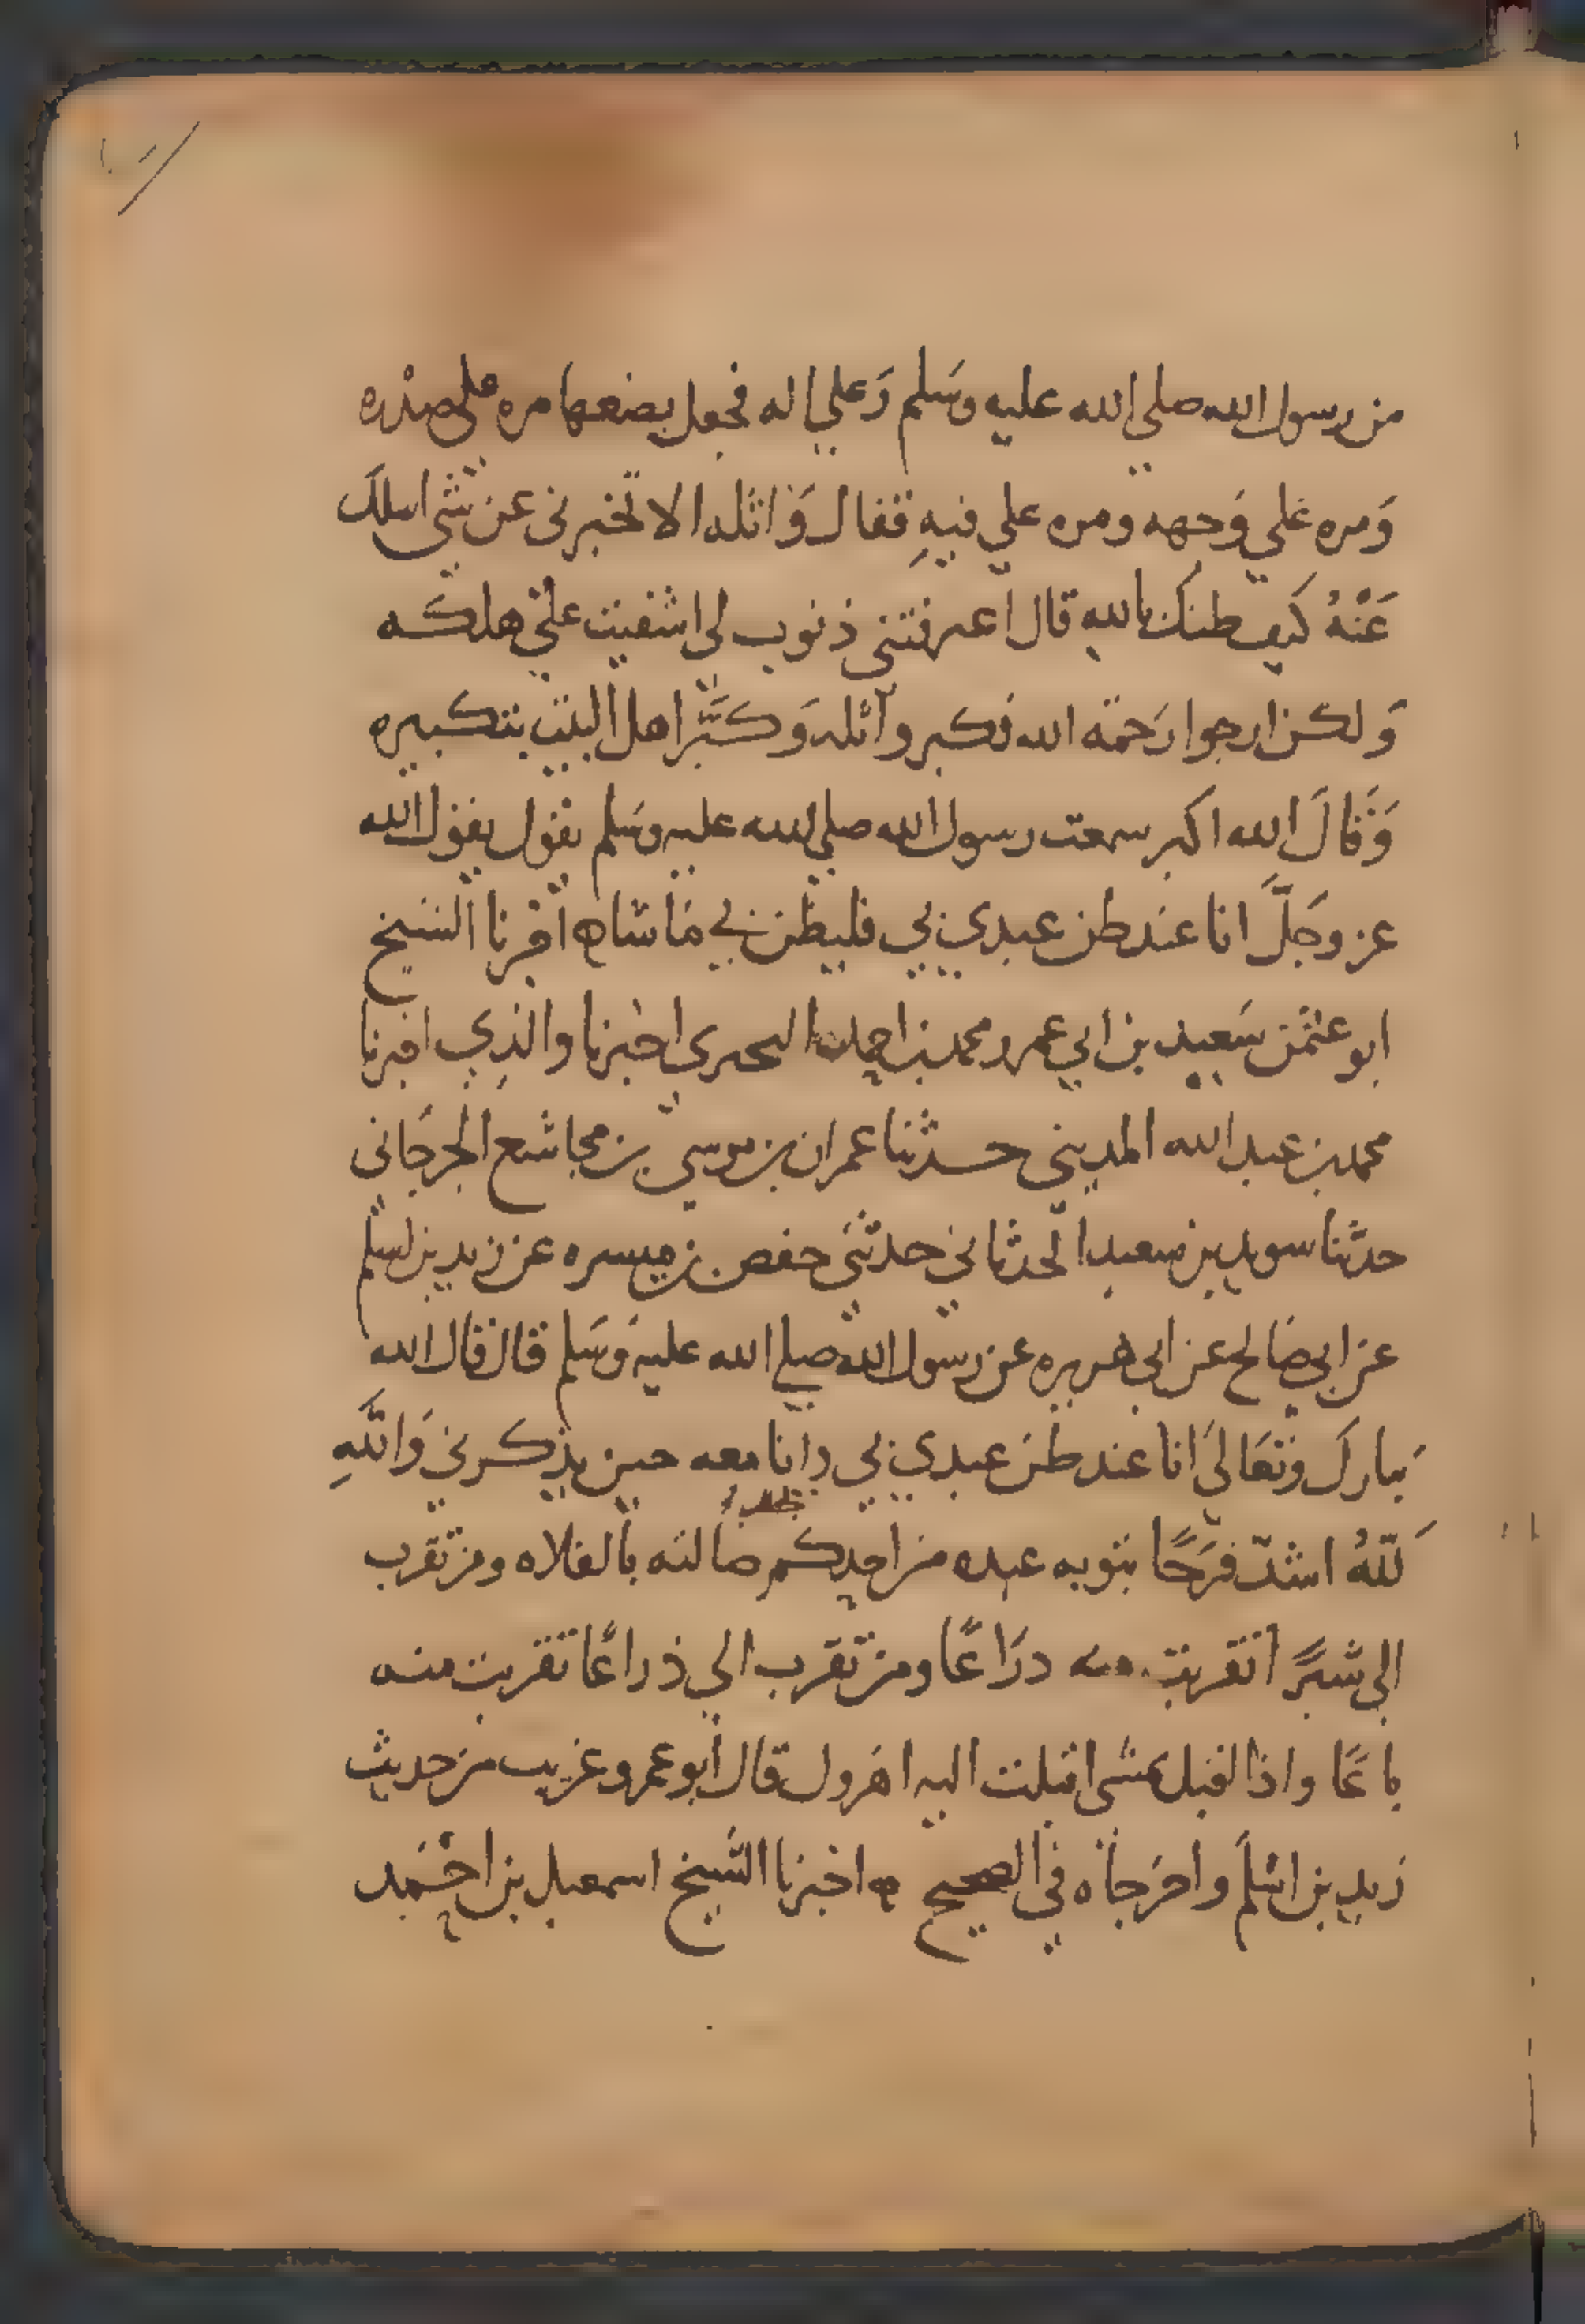 من رسول الله صلى الله عليه وسلم وعلى اله فجعل يضعها مره على صدره
وَمره على وَجهه ومره على فيهِ فقال وَاثله الا تخبرنى عن شي اسلك
عَنْهُ كيف ظنك بالله قال اعرفتنى ذنوب لى اشفيت على هلكه
وَلكن ارجوا رَحمة الله فكبر واثله وَكبَّر اهل البيت بتكبيره
وَقالَ الله اكبر سمعت رسول الله صلى الله عليه وسَلم يقول يقول الله
عز وجَلَّ انا عند ظن عبدي بي فليظن بي مَا شاه اخبرنا الشيخ
ابو عثمن سَعيد بن ابي عمرو محمد بن احمد البحيرى اخبرنا والدِي اخبرنا
محمد بن عبد الله المديني حدثنا عمران بن موسي بن مجاشع الجرجَانى
حدثنا سويد بن سعيد الحدثاني حدثنى حفص بن ميسره عن زيد بن اسلم
عن ابي صَالح عن ابي هريره عن رسول الله صلى الله عليه وَسَلم قال قال الله
تبارك وتعَالىَ انا عند ظن عبدي بي وانا معه حين يذكرني وَاللهِ
يجد
لَلّهُ اشدّ فرَحًا بتوبه عبده من احدكم ضالته بالفلاه ومن تقرب
الى شبرًا تقربت منه ذرَاعًا ومن تقرب الي ذراعًا تقربت منه
باعًا واذا اقبل يمشى اقبلت اليه اهَرول قال ابو عمرو غريب من حديث
زيد بن اسْلم واخرَجاه في الصحيح ه اخبرنا الشيخ اسمعيل بن احْمَد